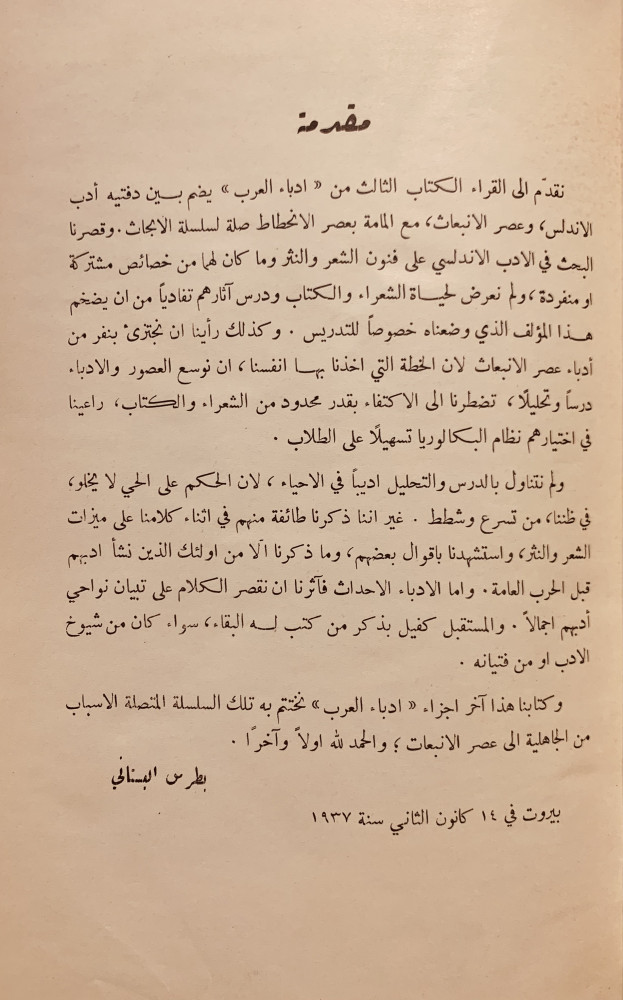 مقدمة
نقدّم الى القراء الكتاب الثالث من « ادباء العرب » يضم بين دفتيه أدب
الاندلس، وعصر الانبعاث، مع المامة بعصر الانحطاط صلة لسلسلة الابحاث. وقصرنا
البحث في الادب الاندلسي على فنون الشعر والنثر وما كان لهما من خصائص مشتركة
او منفردة، ولم نعرض لحياة الشعراء والكتاب ودرس آثارهم تفادياً من ان يضخم
هذا المؤلف الذي وضعناه خصوصاً للتدريس . وكذلك رأينا ان نجتزئ بنفر من
أدباء عصر الانبعاث لان الخطة التي اخذنا بها انفسنا، ان نوسع العصور والادباء
درساً وتحليلًا، تضطرنا الى الاكتفاء بقدر محدود من الشعراء والكتاب، راعينا
في اختيارهم نظام البكالوريا تسهيلًا على الطلاب .
ولم نتناول بالدرس والتحليل اديباً في الاحياء ، لان الحكم على الحي لا يخلو،
في ظننا، من تسرع وشطط . غير اننا ذكرنا طائفة منهم في اثناء كلامنا على ميزات
الشعر والنثر، واستشهدنا باقوال بعضهم، وما ذكرنا الّا من اولئك الذين نشأ ادبهم
قبل الحرب العامة . واما الادباء الاحداث فآثرنا ان نقصر الكلام على تبيان نواحي
أدبهم اجمالاً . والمستقبل كفيل بذكر من كتب له البقاء، سواء كان من شيوخ
الادب او من فتيانه .
وكتابنا هذا آخر اجزاء « ادباء العرب » نختتم به تلك السلسلة المتصلة الاسباب
من الجاهلية الى عصر الانبعاث ؛ والحمد لله اولاً وآخراً .
بطرس البستاني
بيروت في ١٤ كانون الثاني سنة ١٩٣٧